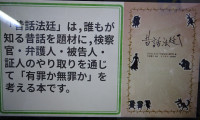 「昔話法廷」は,誰もが
知る昔話を題材に,検察
官・弁護人・被告人・
証人のやり取りを通じ
て「有罪か無罪か」を
考える本です。
昔話法廷